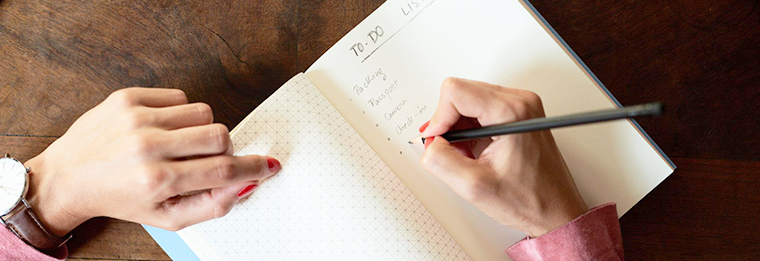 TO-DO LIST
Packing
Passport
Camera
Check-in